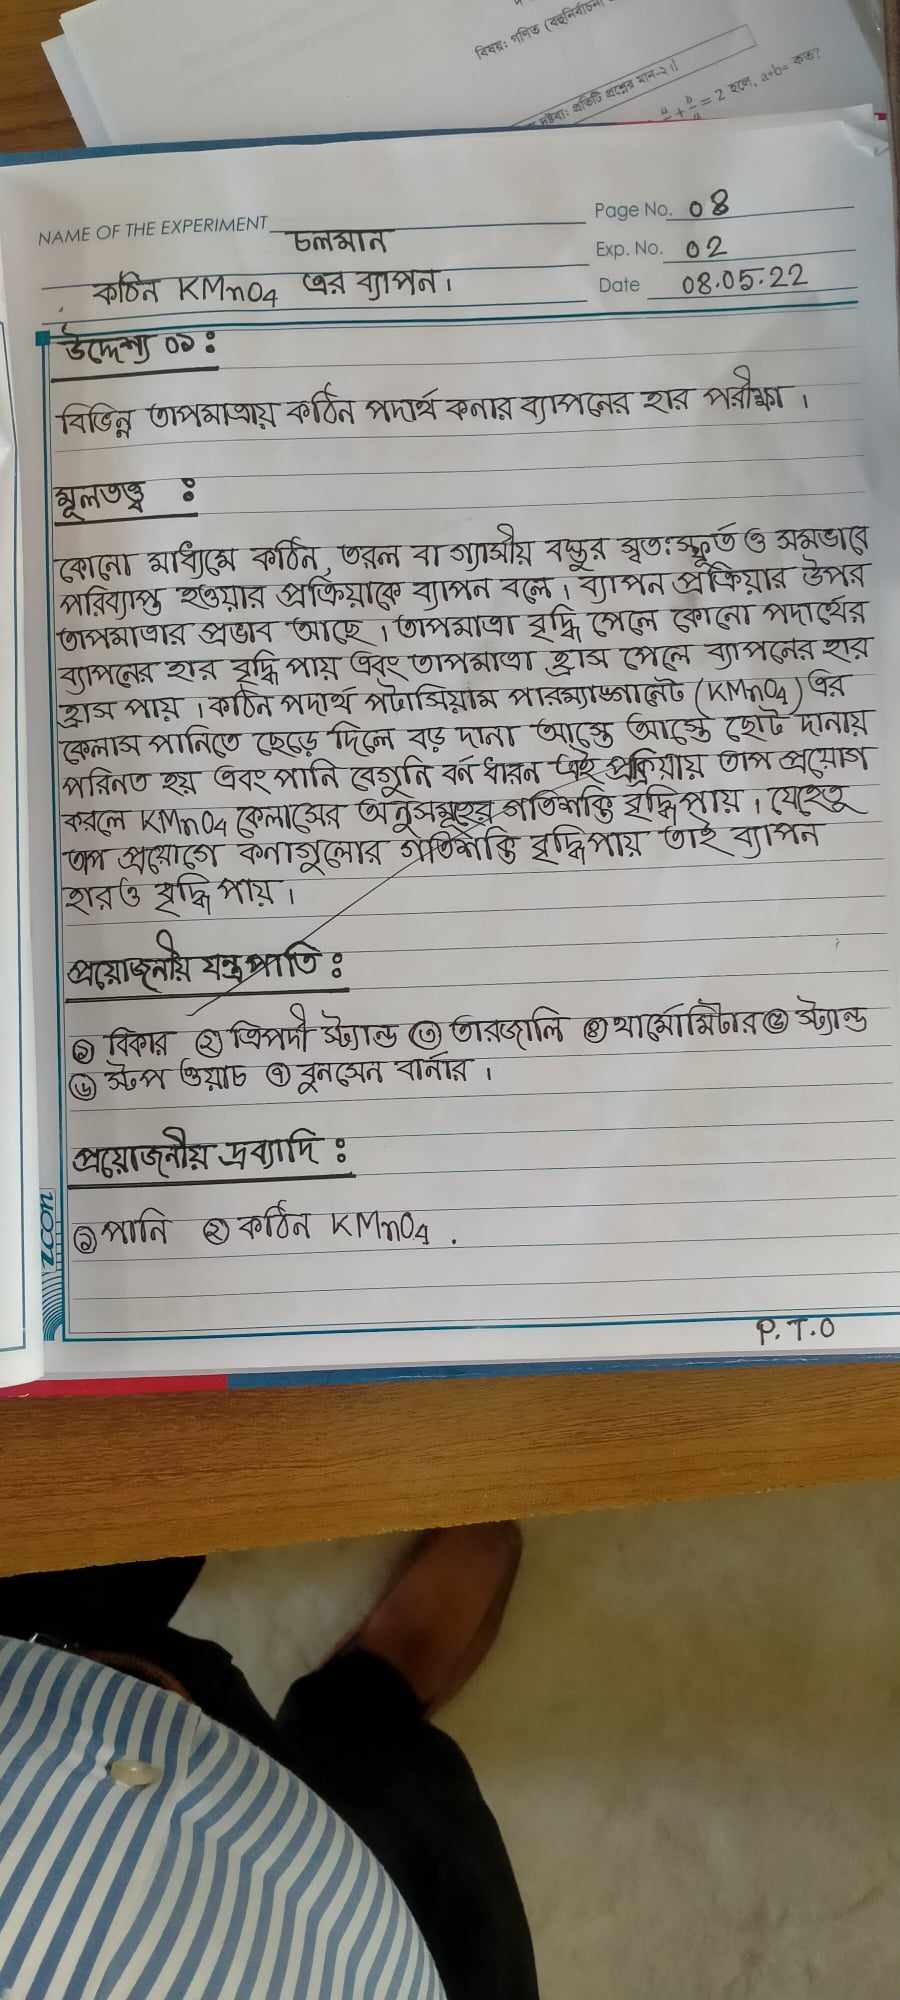 বিষয়: গণিত (বহুনির্বাচনী
প্রতিটি প্রশ্নের মান-২।।
a/ + b/a = 2 হলে, a+b= কত?
NAME OF THE EXPERIMENT চলমান
Page No. 08
কঠিন KMnO4 এর ব্যাপন।
Exp. No. 02
Date 08.05.22
উদ্দেশ্য ০১ :
বিভিন্ন তাপমাত্রায় কঠিন পদার্থ কনার ব্যাপনের হার পরীক্ষা ।
মূলতত্ত্ব :
কোনো মাধ্যমে কঠিন, তরল বা গ্যাসীয় বস্তুর স্বত:স্ফূর্ত ও সমভাবে
পরিব্যাপ্ত হওয়ার প্রক্রিয়াকে ব্যাপন বলে । ব্যাপন প্রক্রিয়ার উপর
তাপমাত্রার প্রভাব আছে । তাপমাত্রা বৃদ্ধি পেলে কোনো পদার্থের
ব্যাপনের হার বৃদ্ধি পায় এবং তাপমাত্রা হ্রাস পেলে ব্যাপনের হার
হ্রাস পায় । কঠিন পদার্থ পটাসিয়াম পারম্যাঙ্গানেট (KMnO4) এর
কেলাস পানিতে ছেড়ে দিলে বড় দানা আস্তে আস্তে ছোট দানায়
পরিনত হয় এবং পানি বেগুনি বর্ন ধারন এই প্রক্রিয়ায় তাপ প্রয়োগ
করলে KMnO4 কেলাসের অনুসমূহের গতিশক্তি বৃদ্ধি পায় । যেহেতু
তাপ প্রয়োগে কনাগুলোর গতিশক্তি বৃদ্ধি পায় তাই ব্যাপন
হারও বৃদ্ধি পায় ।
প্রয়োজনীয় যন্ত্রপাতি :
১ বিকার ২ ত্রিপদী স্ট্যান্ড ৩ তারজালি ৪ থার্মোমিটার ৫ স্ট্যান্ড
৬ স্টপ ওয়াচ ৭ বুনসেন বার্নার ।
প্রয়োজনীয় দ্রব্যাদি :
১ পানি ২ কঠিন KMnO4 .
icon
P.T.O